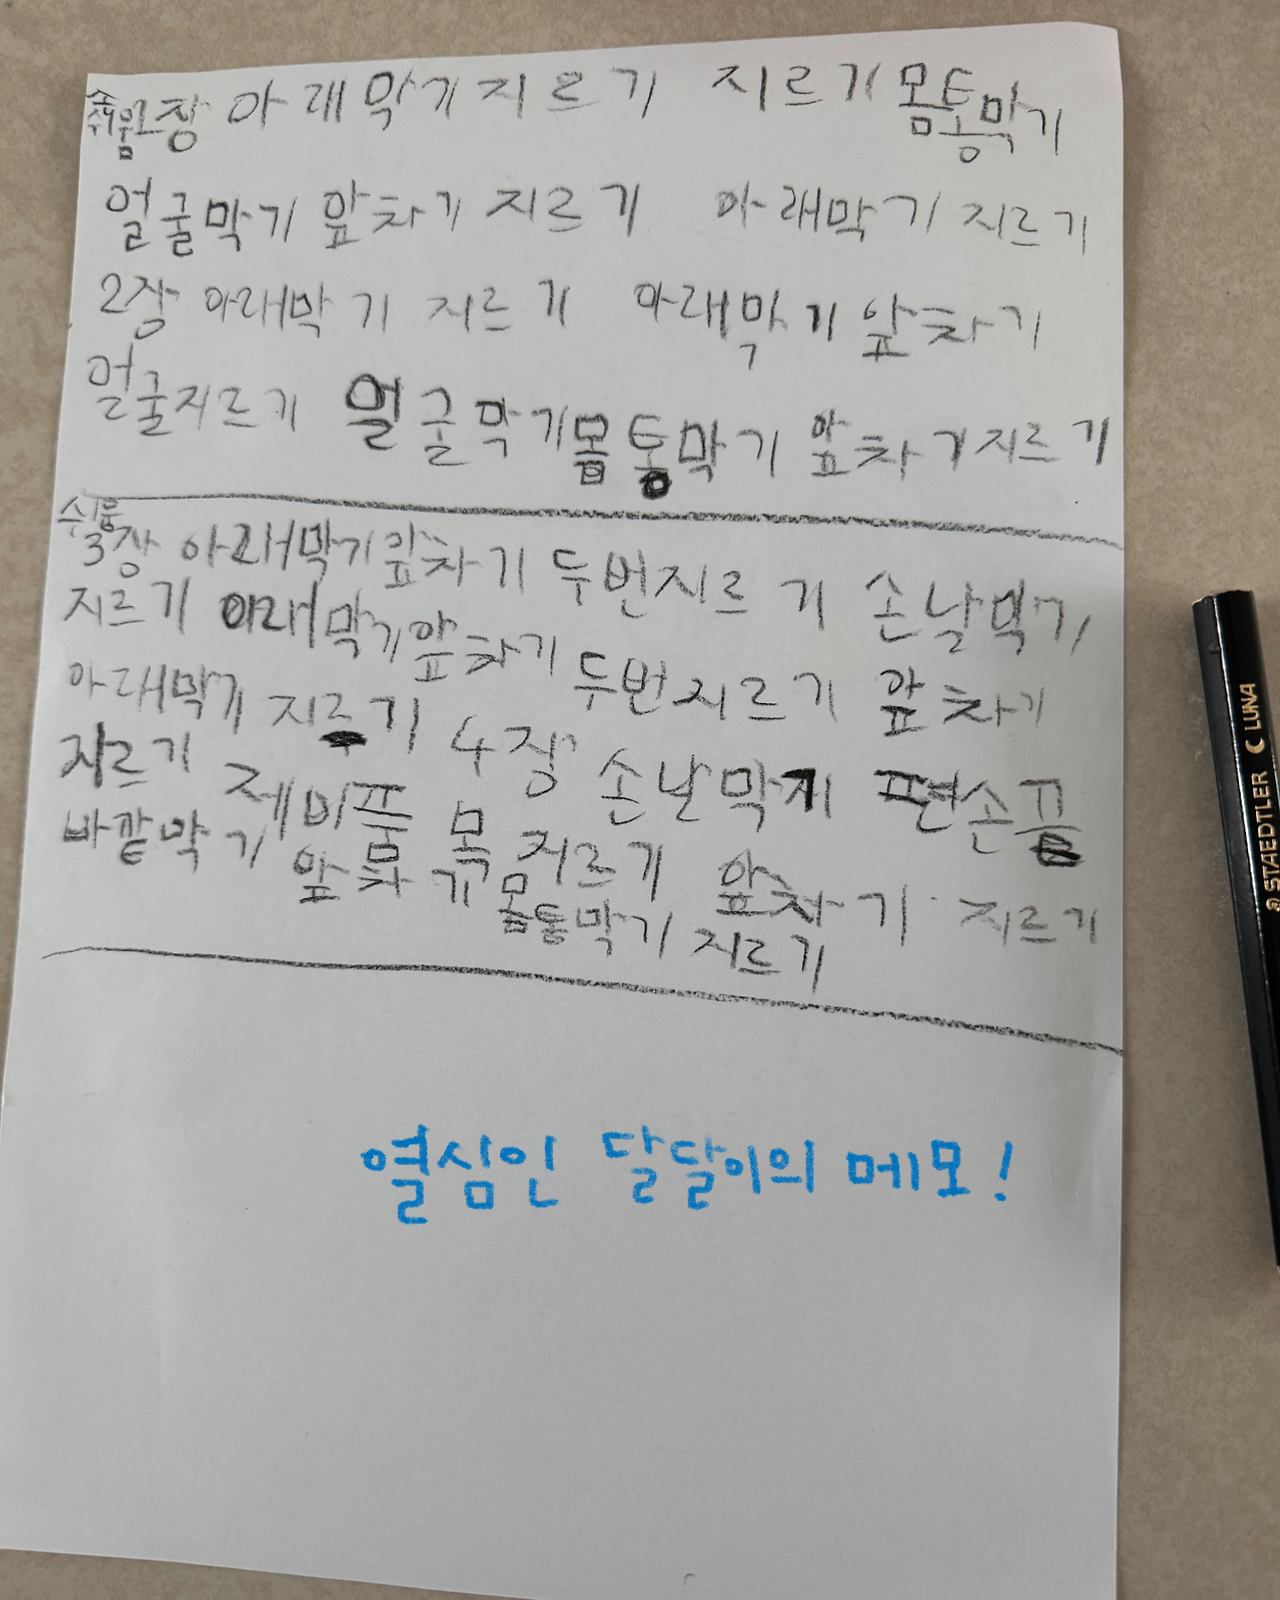 쉬움1장 아래막기지르기 지르기몸통막기
얼굴막기 앞차기 지르기 아래막기 지르기
2장 아래막기 지르기 아래막기 앞차기
얼굴지르기 얼굴막기몸통막기 앞차기지르기
쉬움
3장 아래막기앞차기 두번지르기 손날막기
지르기 아래막기앞차기 두번지르기 앞차기
아래막기 지르기 4장 손날막기 편손끝
지르기 제비품 목 지르기 앞차기 지르기
바깥막기 앞차기 몸통막기 지르기
열심인 달달이의 메모!
STAEDTLER LUNA